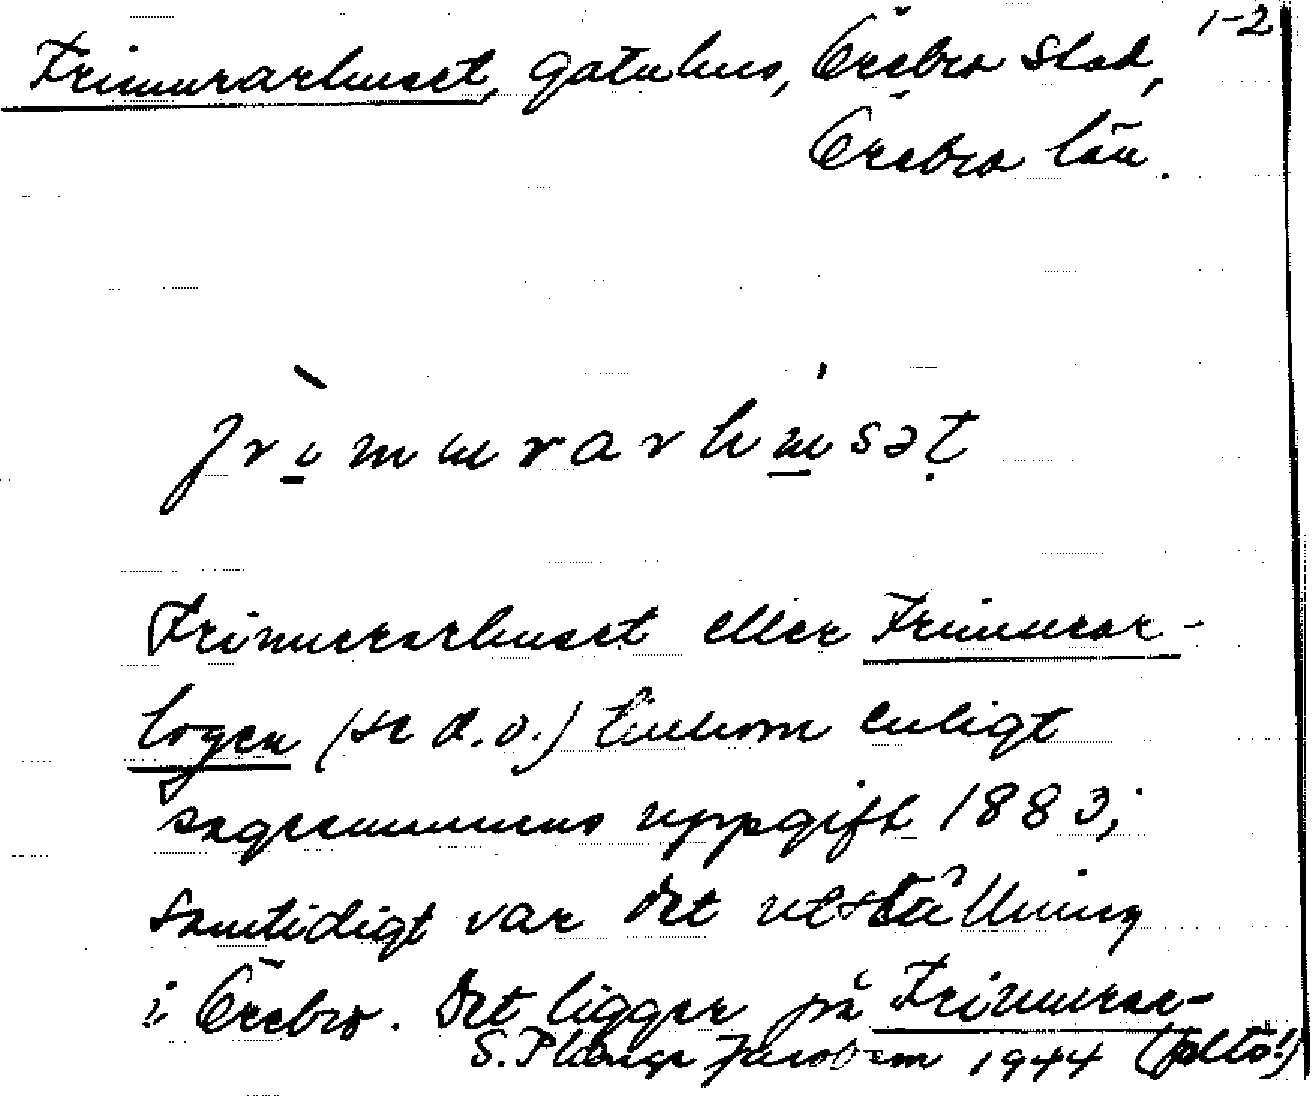 1-2
Frimurarhuset, gatuhus, Örebro stad,
Örebro län.
frimurarhusət
Frimurarhuset eller Frimurar-
logen (se d.o.) tillkom enligt
sagesmannens uppgift 1883;
samtidigt var det utställning
i Örebro. Det ligger på Frimurar-
S. Plenge Jacobson 1944 (folto!)